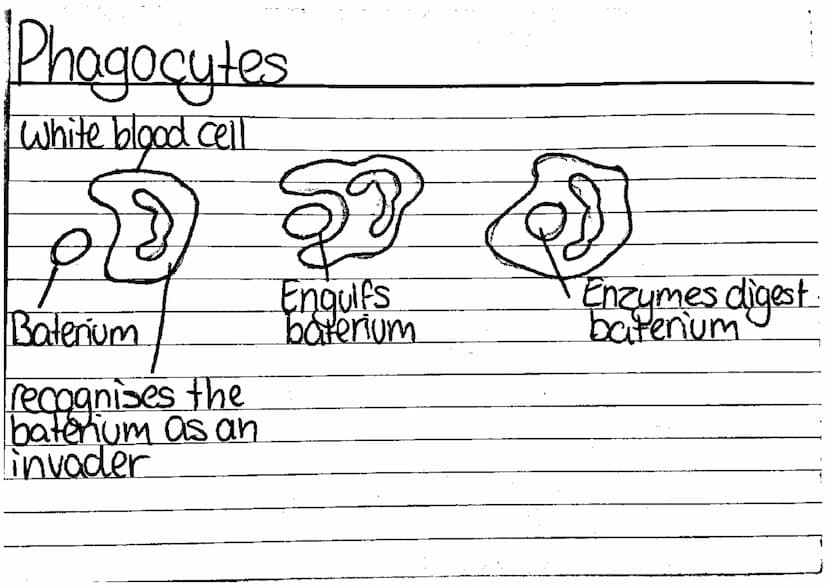 Phagocytes
White blood cell
Baterium
recognises the
baterium as an
invader
Engulfs
baterium
Enzymes digest
baterium